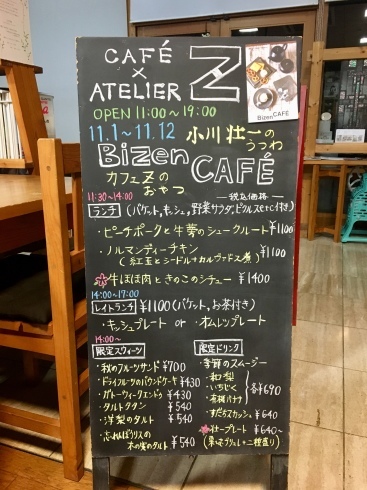 CAFÉ
×
ATELIER
Z
BizenCAFÉ
OPEN 11:00〜19:00
11.1〜11.12 小川 壮一の
うつわ
Bizen CAFÉ
カフェZの
おやつ
11:30〜14:00
ー税込価格ー
ランチ (バゲット、キッシュ、野菜サラダ、ピクルスetc付き)
・ピーチポークと牛蒡のシュークルート ¥1100
・ノルマンディーチキン
(紅玉とシードル+カルヴァドス煮) ¥1100
牛ほほ肉ときのこのシチュー ¥1400
14:00〜17:00
レイトランチ ¥1100(バゲット、お茶付き)
・キッシュプレート or オムレツプレート
14:00〜
限定スウィーツ
・秋のフルーツサンド ¥700
・ドライフルーツのパウンドケーキ ¥430
・ガトーウィークエンド ¥430
・タルトタタン ¥540
・洋梨のタルト ¥540
木の実のタルト ¥540
限定ドリンク
・季節のスムージー
・和梨
・いちじく
・有機バナナ
各¥690
・すだちスカッシュ ¥640
プレート ¥640〜